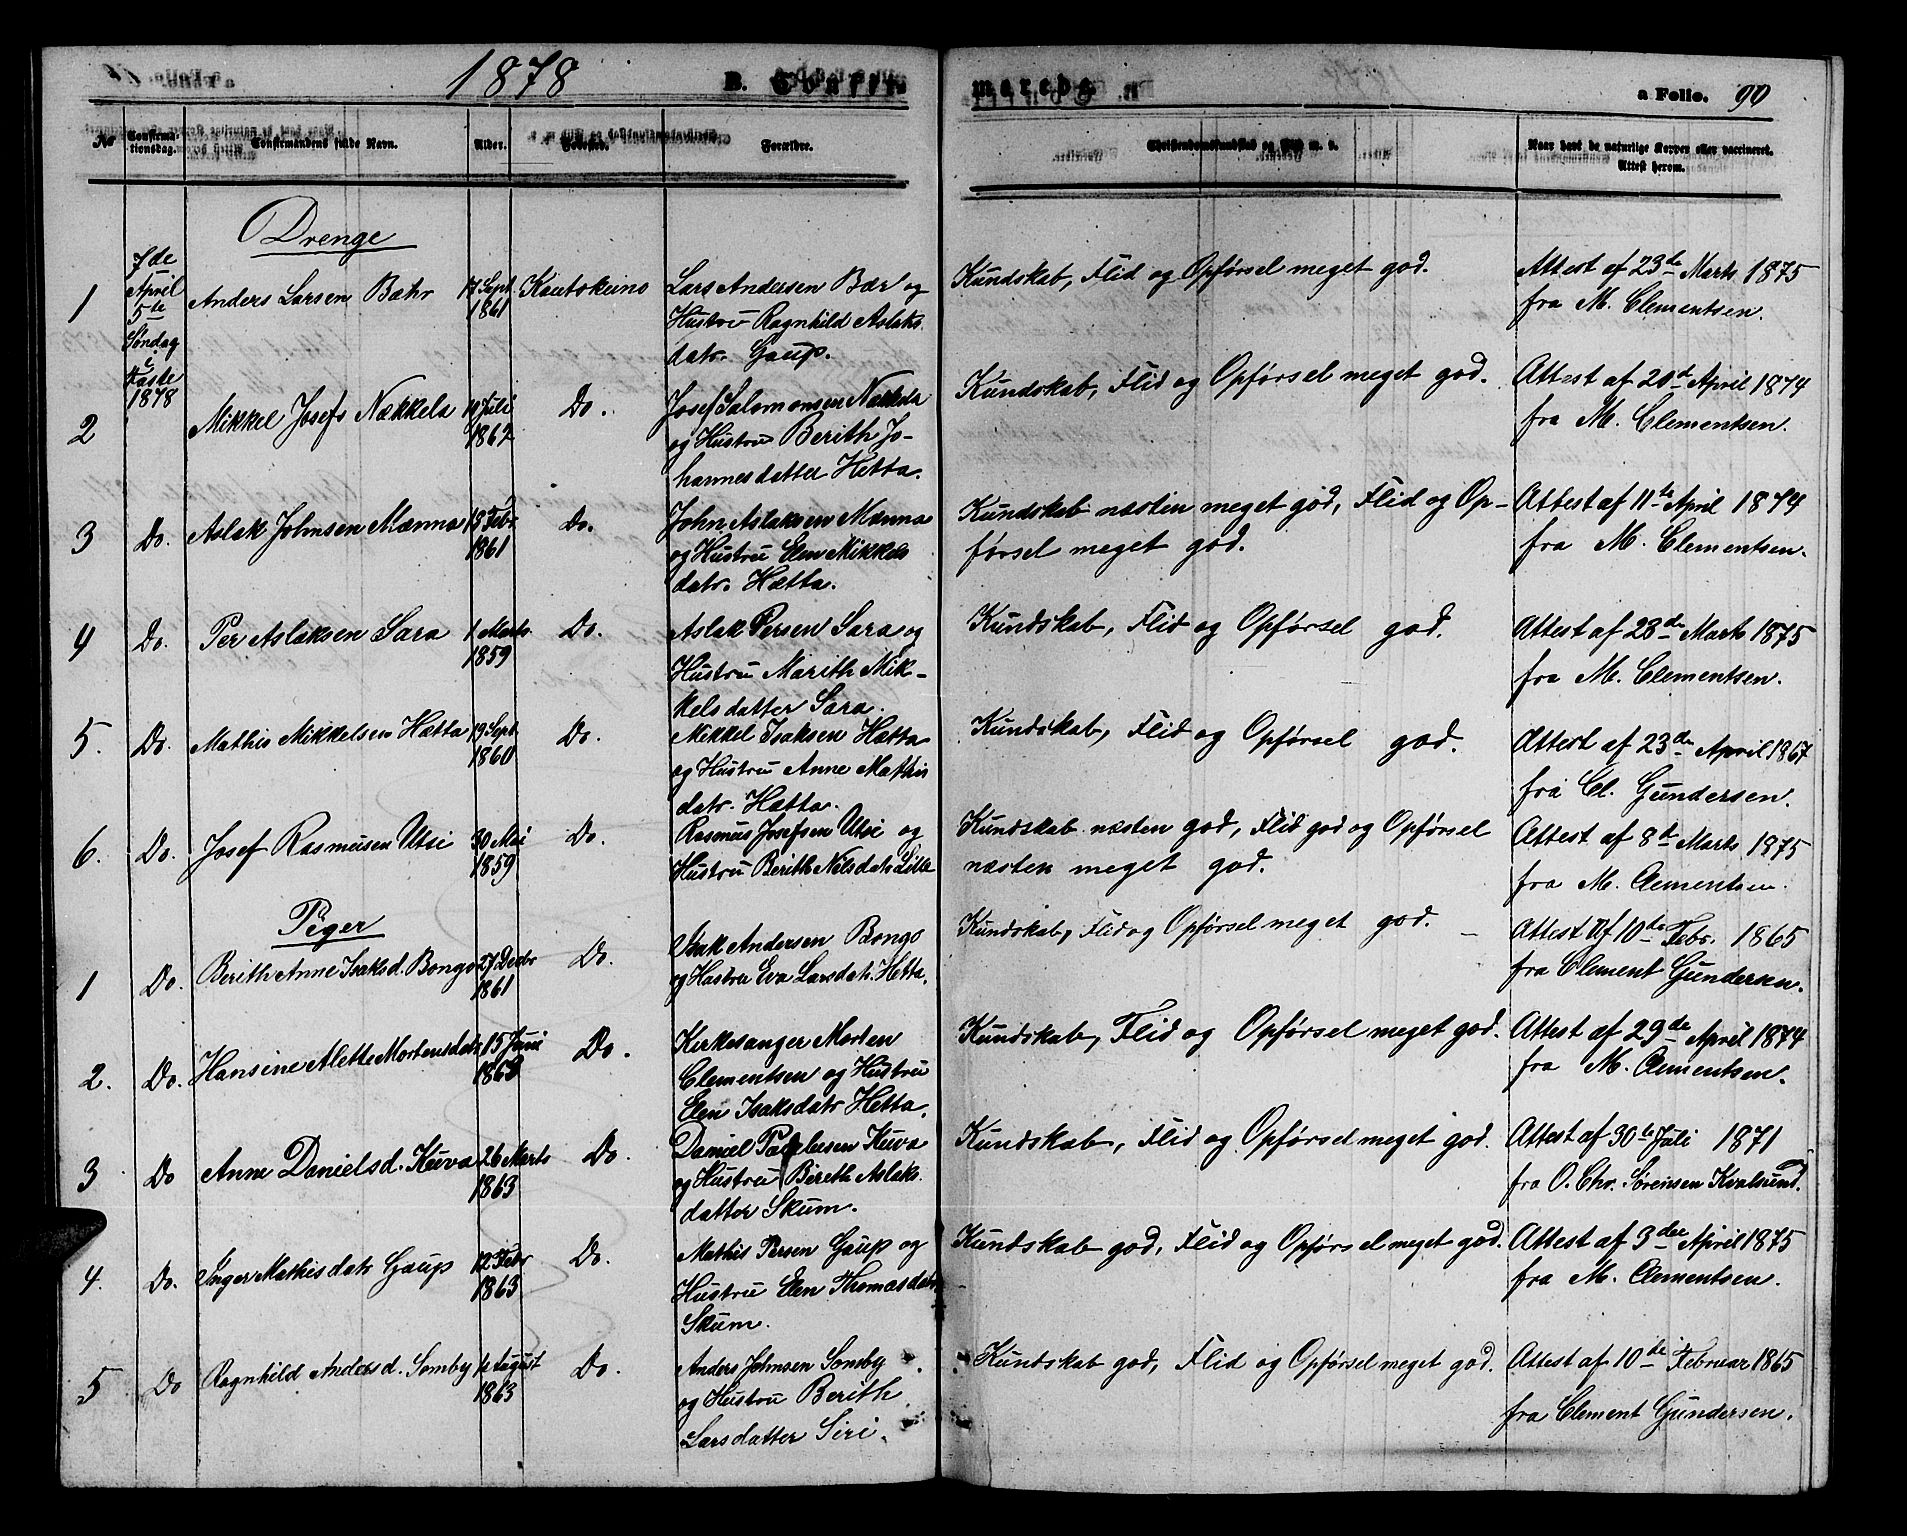 1878 B. Confir- merede. a Folio. 90
No Confirma-
tionsdag. Confirmandens fulde Navn. Alder. Fødested. Forældre. Christendomskundskab og Flid m. v. Naar havt de naturlige Kopper eller vaccineret.
Attest herom.
Drenge
1 7de
April
5te
Søndag
i
Faste
1878 Anders Larsen Bæhr 17 Sept.
1861 Kautokeino Lars Andersen Bær og
Hustru Ragnhild Aslaks
datr. Gaup. Kundskab, Flid og Opførsel meget god. Attest af 23de Marts 1875
fra M. Clementsen.
2 Mikkel Josefs Nækkela Juli
1862 Do. Josef Salomonsen Nækkela
og Hustru Berith Jo-
hannesdatter Hetta. Kundskab, Flid og Opførsel meget god. Attest af 20de April 1874
fra M. Clementsen.
3 Do. Aslak Johnsen Mænna 18 Febr.
1861 Do. John Aslaksen Mænna
og Hustru Elen Mikkels
datr. Hætta. Kundskab næsten meget god, Flid og Op-
førsel meget god. Attest af 11te April 1874
fra M. Clementsen.
4 Do. Per Aslaksen Sara 1 Marts
1859 Do. Aslak Persen Sara og
Hustru Marith Mik-
kelsdatter Sara. Kundskab, Flid og Opførsel god. Attest af 23de Marts 1875
fra M. Clementsen.
5. Do. Mathis Mikkelsen Hætta 19 Sept
1860 Do. Mikkel Isaksen Hætta
og Hustru Anne Mathis
datr. Hætta. Kundskab, Flid og Opførsel god. Attest af 23de April 1867
fra Cl. Gundersen.
6. Do. Josef Rasmusen Utsi 30 Mai
1859 Do. Rasmus Josefsen Utsi og
Hustru Berith Nilsdatr. Kundskab næsten god, Flid god og Opførsel
næsten meget god. Attest af 8de Marts 1875
fra M. Clementsen.
Piger
1 Do. Berith Anne Isaksd. Bongo 27 Decbr
1861 Do. Isak Andersen Bongo
og Hustru Eva Larsdatr. Hetta. Kundskab, Flid og Opførsel meget god. Attest af 10de Febr. 1865
fra Clement Gundersen.
2. Do. Hansine Alette Mortensdatr 15 Juni
Do. Kirkesanger Morten
Clementsen og Hustru
Elen Isaksdatr Hetta. Kundskab, Flid og Opførsel meget god. Attest af 29de April 1874
fra M. Clementsen.
3 Do Anne Danielsd. Kuva 26 Marts
1863 Do. Daniel Kuva
og Hustru Berith Aslaks
datter Skum. Kundskab, Flid og Opførsel meget god. Attest af 30te Juli 1871
fra O. Chr. Sørensen Kvalsund.
4. Do. Inger Mathisdatr Gaup 12 Febr
1863 Do. Mathis Persen Gaup og
Hustru Elen Thomasdatr
Skum. Kundskab god, Flid og Opførsel meget god. Attest af 3die April 1875
fra M. Clementsen.
5 Do Ragnhild Andersd. Somby August
1863 Do. Anders Johnsen Somby
og Hustru Berith
Larsdatter Siri. Kundskab god, Flid og Opførsel meget god. Attest af 10de Februar 1865
fra Clement Gundersen.